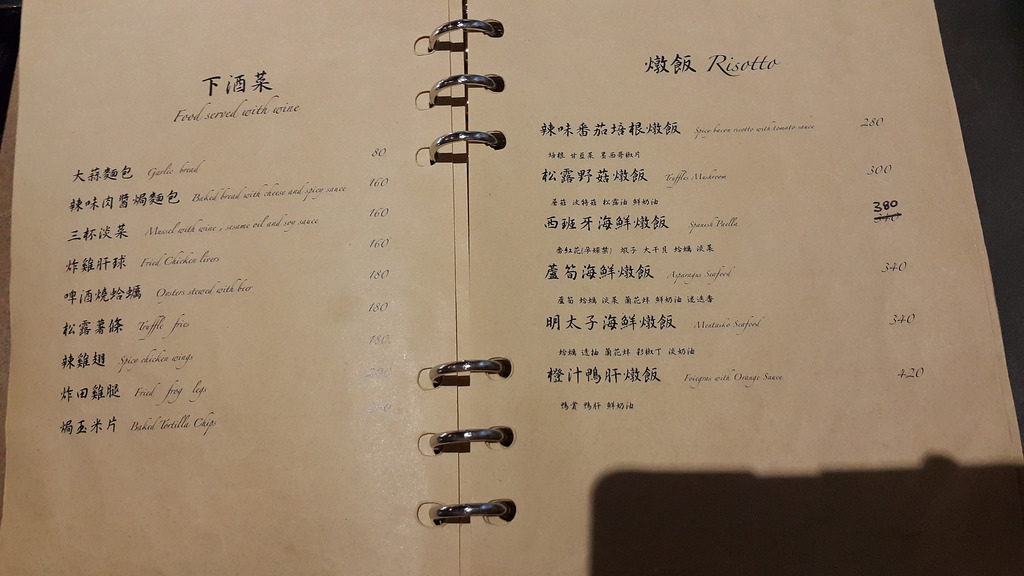 下酒菜
Food served with wine
大蒜麵包 Garlic bread 80
辣味肉醬焗麵包 Baked bread with cheese and spicy sauce 160
三杯淡菜 Mussel with wine , sesame oil and soy sauce 160
炸雞肝球 Fried Chicken livers 160
啤酒燒蛤蠣 Oysters stewed with beer 180
松露薯條 Truffle fries 180
辣雞翅 Spicy chicken wings 180
炸田雞腿 Fried frog legs
焗玉米片 Baked Tortilla Chips
燉飯 Risotto
辣味番茄培根燉飯 Spicy bacon risotto with tomato sauce 280
培根 甘豆菜 墨西哥椒片
松露野菇燉飯 Truffles Mushroom 300
蘑菇 波特菇 松露油 鮮奶油
西班牙海鮮燉飯 Spanish Paella 380
番紅花(孕婦禁) 蝦子 大干貝 蛤蠣 淡菜
蘆筍海鮮燉飯 Asparagus Seafood 340
蘆筍 蛤蠣 淡菜 蘭花蚌 鮮奶油 迷迭香
明太子海鮮燉飯 Mentaiko Seafood 340
蛤蠣 透抽 蘭花蚌 彩椒丁 淡奶油
橙汁鴨肝燉飯 Foiegras with Orange Sauce 420
鴨賞 鴨肝 鮮奶油